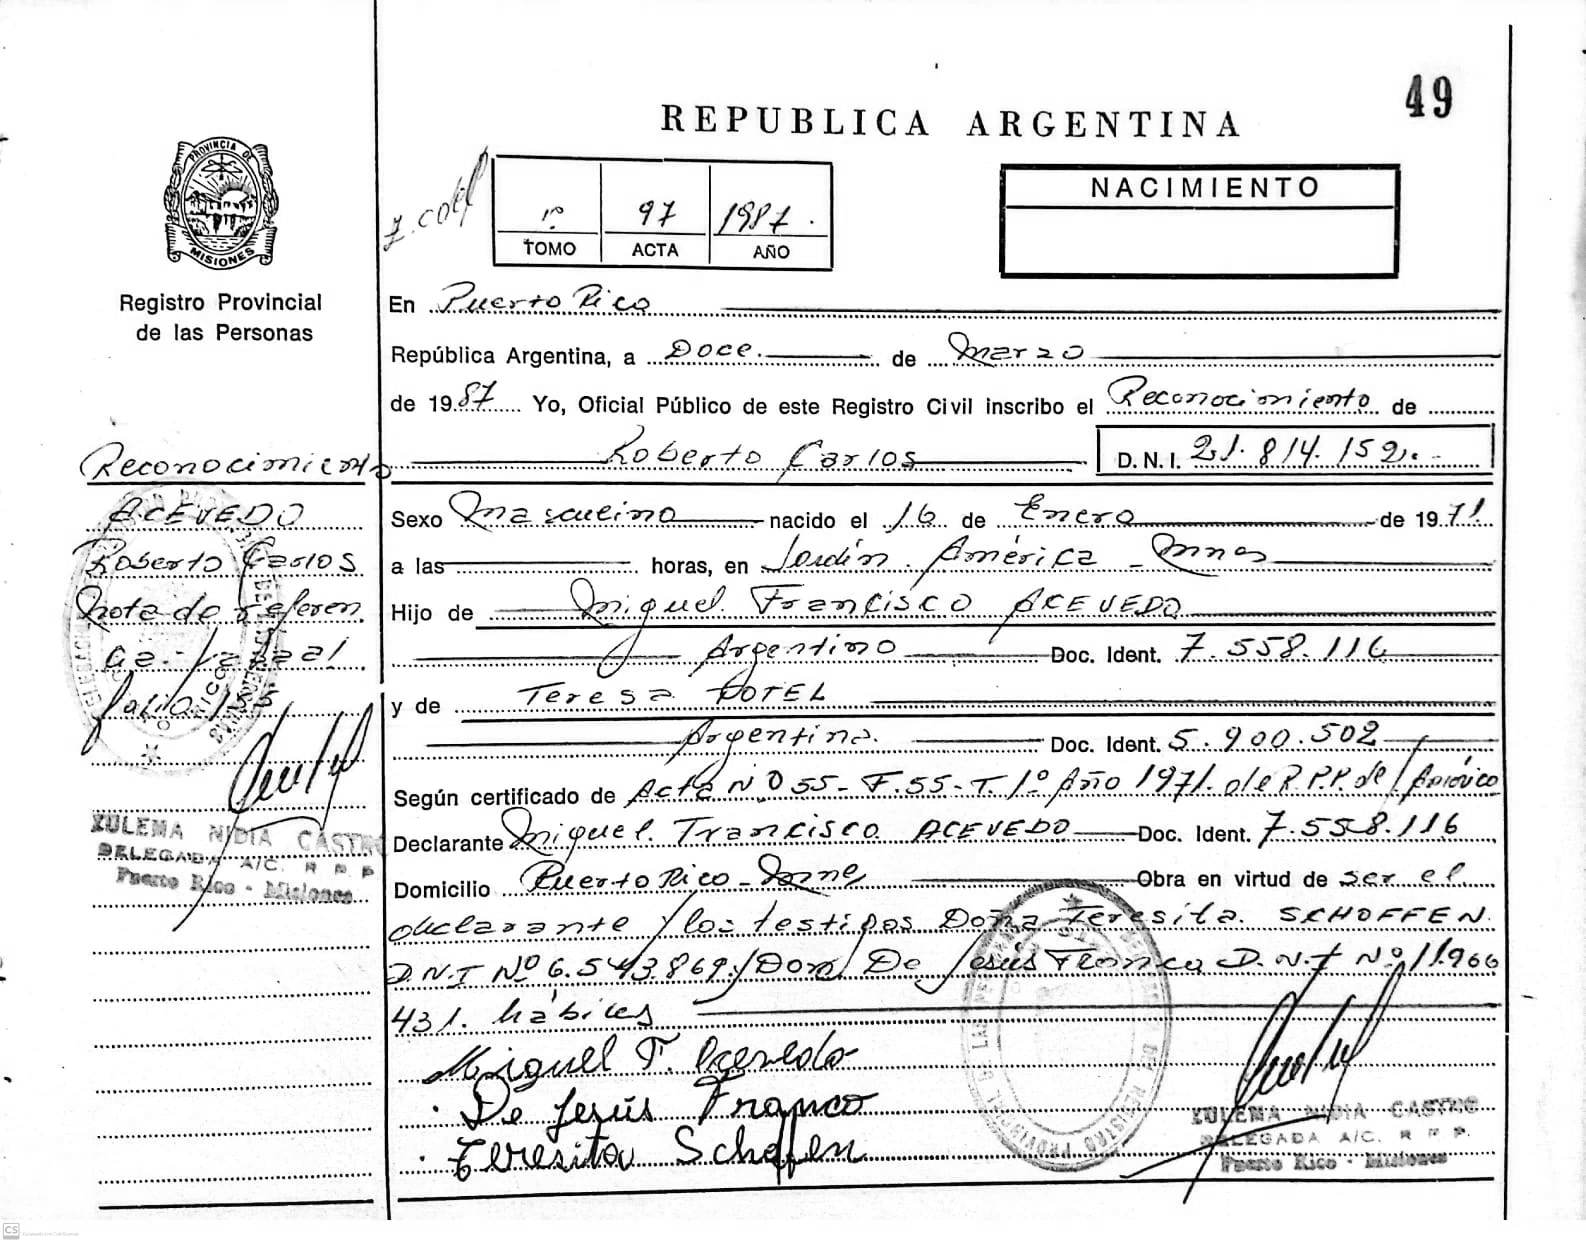 49
REPUBLICA ARGENTINA
PROVINCIA DE
MISIONES
Registro Provincial
de las Personas
1º 97 1987.
TOMO ACTA AÑO
NACIMIENTO
En Puerto Rico
República Argentina, a Doce. de Marzo
de 1987 Yo, Oficial Público de este Registro Civil inscribo el Reconocimiento de
Roberto Carlos D.N.I. 21.814.152.
Sexo Masculino nacido el 16 de Enero de 1971
a las horas, en Jardín América - Mnes
Hijo de Miguel Francisco ACEVEDO
Argentino Doc. Ident. 7.558.116
y de Teresa DOTEL
Argentina. Doc. Ident. 5.900.502
Según certificado de Acta Nº 55 - F.55 - T. 1º Año 1971. de R.P.P. de
Declarante Miguel Francisco ACEVEDO Doc. Ident. 7.558.116
Domicilio Puerto Rico - Mnes Obra en virtud de ser el
declarante y los testigos Doña Teresita. SCHOFFEN.
D.N.I Nº 6.543.869. y Don De Jesús Franco D.N.I Nº 11.966
431. hábiles
Miguel F. Acevedo
De Jesús Franco
Teresita Schoffen
ZULEMA NIDIA CASTRO
DELEGADA A/C. R P P.
Puerto Rico - Misiones
Reconocimiento
ACEVEDO
Roberto Carlos
Nota de referen
cia
folio 155
ZULEMA NIDIA CASTRO
DELEGADA A/C. R P P
Puerto Rico - Misiones
CS